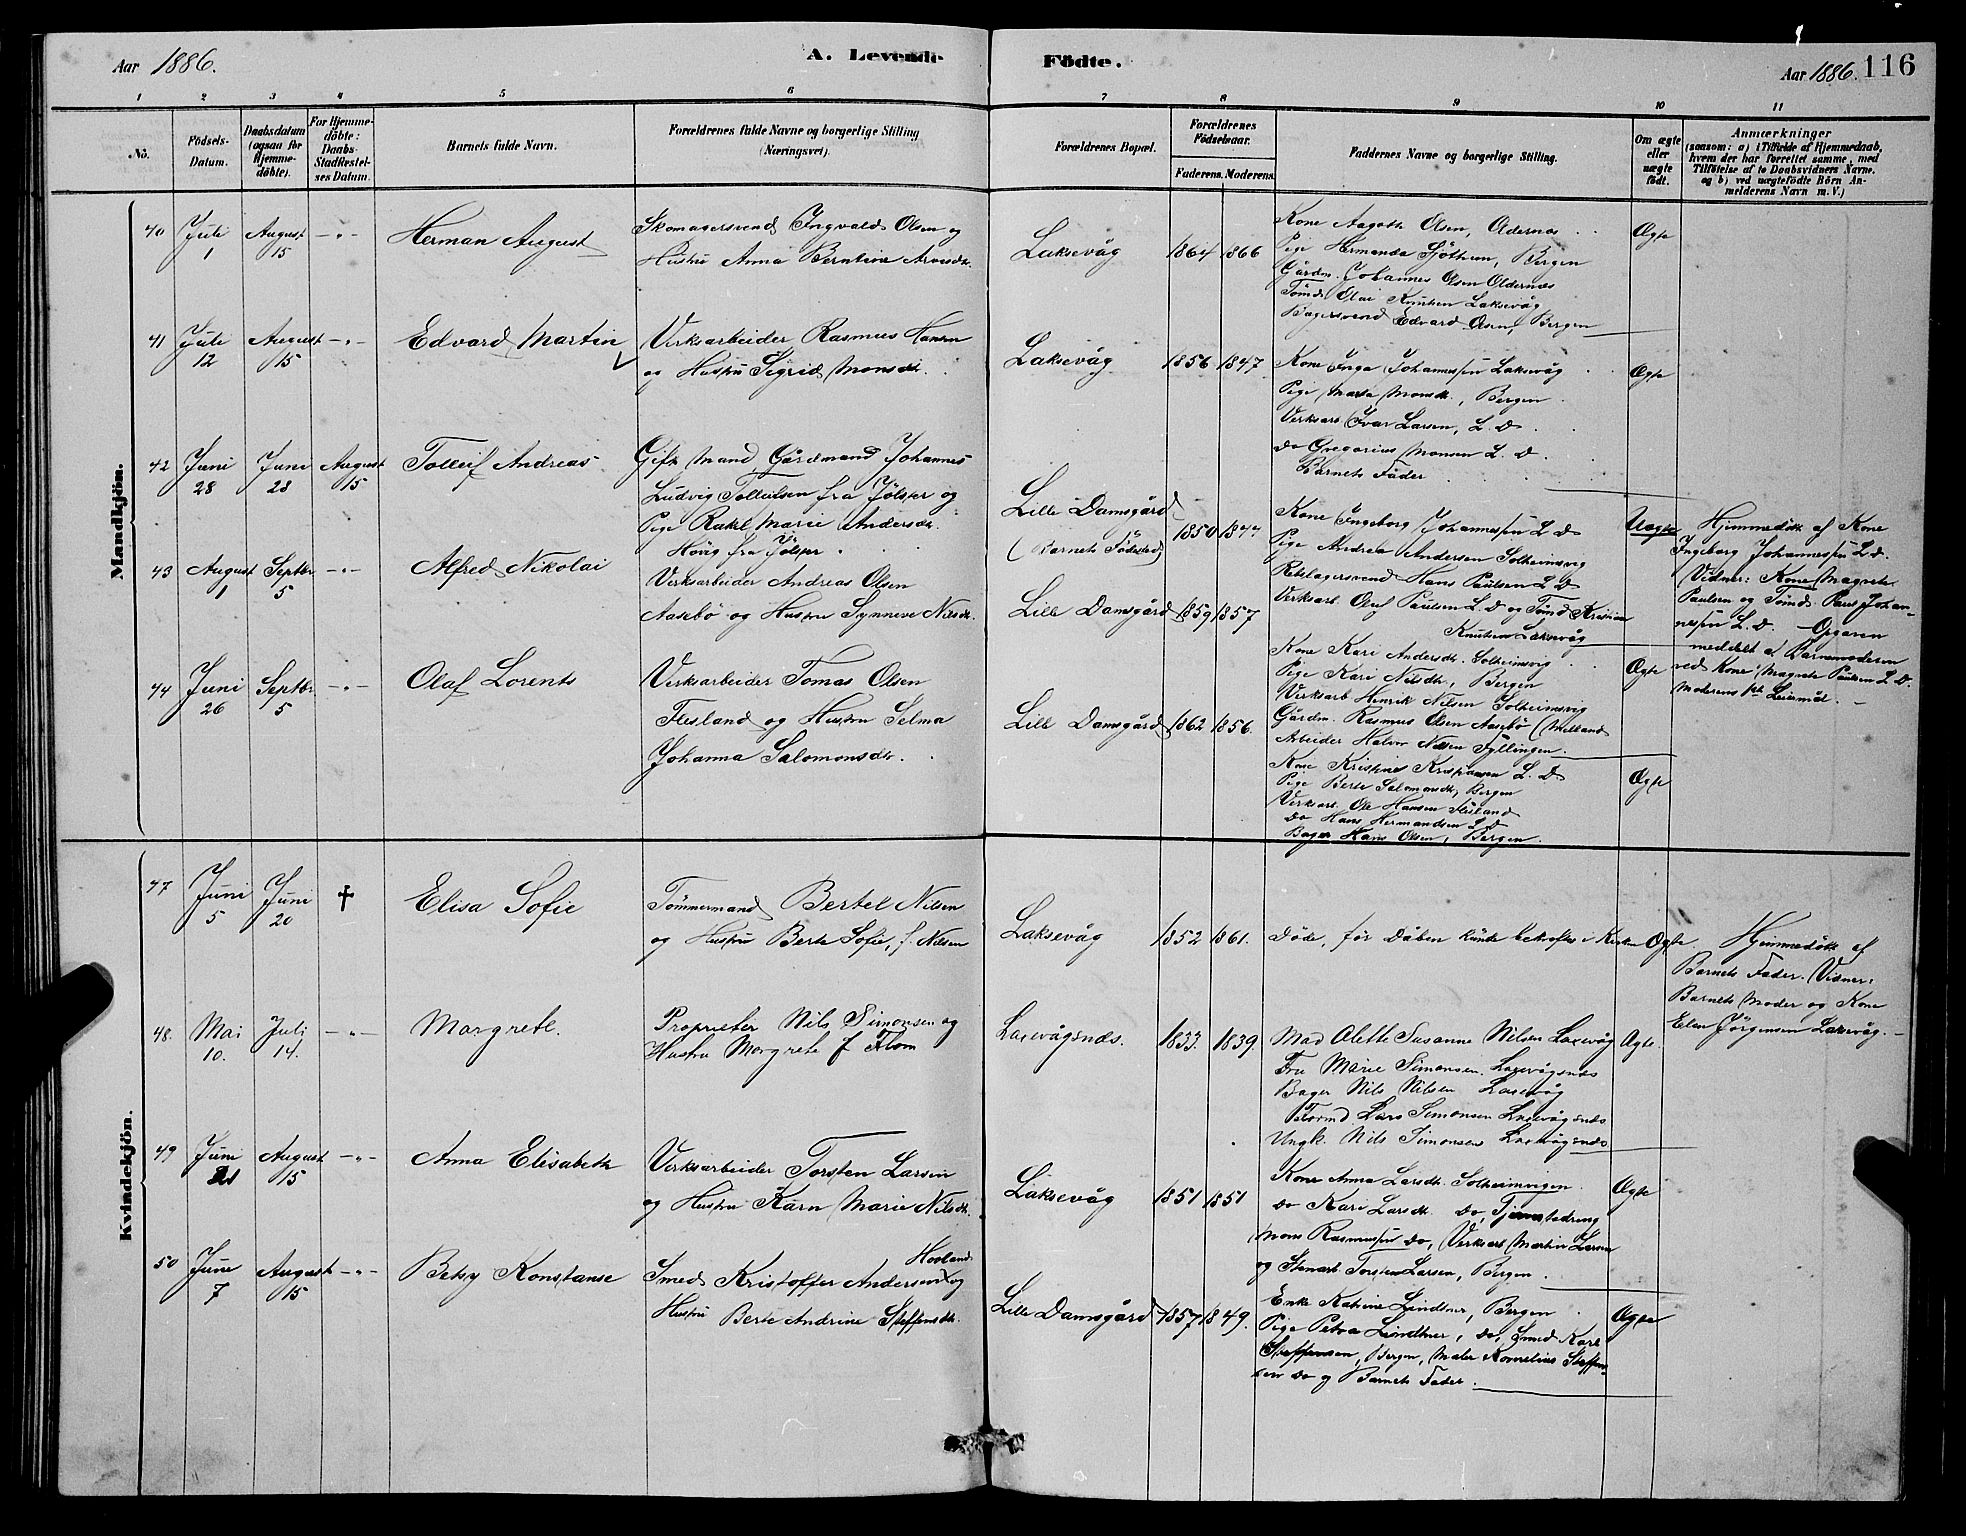 Aar 1886.
A. Levende
Födte.
Aar 1886. 116
1 2 3 4 5 6 7 8 9 10 11
No.
Födsels-
Datum.
Daabsdatum
(ogsaa for
Hjemme-
döbte).
For Hjemme-
döbte:
Daabs-
Stadfæstel-
ses Datum.
Barnets fulde Navn.
Forældrenes fulde Navne og borgerlige Stilling
(Næringsvei).
Forældrenes Bopæl.
Forældrenes
Födselsaar.
Faderens. Moderens.
Faddernes Navne og borgerlige Stilling.
Om ægte
eller
uægte
födt.
Anmærkninger
(saasom: a) i Tilfælde af Hjemmedaab,
hvem der har forrettet samme, med
Tilföielse af to Daabsvidners Navne.
og b) ved uægtefödte Börn An-
melderens Navn m. V.)
Mandkjön.
40 Juli 1 August 15 - " - Herman August
Skomagersvend Ingvald Olsen og
Hustru Anna Berntine Arnesdtr.
Laksevåg 1864 1866
Kone Aagoth Olsen, Oldernæs
Pige Hermanda Sjöthun, Bergen
Gårdm. Johannes Olsen Oldernæs
Tömd. Olai Knutsen Laksevåg
Bagersvend Edvard Olsen, Bergen
Ægte
41 Juli 12 August 15 - " - Edvard Martin
Verksarbeider Rasmus Hansen
og Hustru Sigrid Monsdtr.
Laksevåg 1856 1847
Kone Inga Johannessen Laksevåg
Pige Marta Monsdtr., Bergen
Verksarb. Ivar Larsen, L. D.
do Gregorius Monsen L. D.
Barnets Fader
Ægte
42 Juni 28 Juni 28 August 15 Tolleif Andreas
Gift Mand, Gårdmand Johannes
Ludvig Tolleifsen fra Jölster og
Pige Rakel Marie Andersdtr.
Hövig fra Jölster
Lille Damsgård
(Barnets Födested)
1850 1847
Kone Ingeborg Johannessen L. D
Pige Andrea Andersen Solheimsvig
Rebslagersvend Hans Paulsen L. D
Verksarb. Oluf Paulsen L. D og Tömd Kristian
Knutsen Laksevåg
Uægte
Hjemmedöbt af Kone
Ingeborg Johannessen L. D.
Vidner: Kone Magrete
Paulsen og Tömd. Paul Johan-
nessen L. D. - Opgaven
meddelt af Barnemoderen
ved Kone Magrete Paulsen L. D.
Moderens 1ste Leiermål. -
43 August 1 Septbr 5 - " - Alfred Nikolai
Verksarbeider Andreas Olsen
Aasebö og Hustru Synneve Nilsdtr.
Lille Damsgård 1859 1857
Kone Kari Andersdtr. Solheimsvig
Pige Kari Nilsdtr, Bergen
Verksarb Henrik Nilsen Solheimsvig
Gårdm. Rasmus Olsen Aasebö (Melland
Arbeider Halvor Nilsen Fyllingen.
Ægte
44 Juni 26 Septbr 5 - " - Olaf Lorents
Verksarbeider Tomas Olsen
Flesland og Hustru Selma
Johanna Salomonsdtr.
Lille Damsgård 1862 1856.
Kone Kristine Kristiansen L. D
Pige Berte Salomonsdtr, Bergen
Verksarb. Ole Hansen Flesland
do Hans Hermandsen L D
Bager Hans Olsen, Bergen.
Ægte
Kvindekjön.
47 Juni 5 Juni 20 † Elisa Sofie
Tömmermand Bertel Nilsen
og Hustru Berte Sofie, f. Nilsen
Laksevåg 1852 1861.
Döde, för Dåben kunde bekræftes i Kirken Ægte.
Hjemmedöbt af
Barnets Fader. Vidner:
Barnets Moder og Kone
Elen Jörgensen Laksevåg. -
48. Mai 10. Juli 14. - " - Margrete.
Proprietær Nils Simonsen og
Hustru Margrete f Flom
Laxevågsnæs. 1833. 1839.
Mad Olette Susanne Nilsen Laxevåg Ægte.
Fru Marie Simonsen. Laxevågsnæs
Bager Nils Nilsen Laxevåg
Formd. Lars Simonsen Laxevågsnæs
Ungk. Nils Simonsen Laxevågsnæs
49 Juni 21 August 15 - " - Anna Elisabeth
Verksarbeider Torsten Larsen
og Hustru Karn Marie Nilsdtr.
Laksevåg 1851 1851
Kone Anna Larsdtr. Solheimsvigen.
do Kari Larsdtr. do,
Mons Rasmussen do, Verksarb Martin Larsen
og Torsten Larsen, Bergen
Ægte
50 June 7 August 15 - " - Betsy Konstanse
Smed Kristoffer Andersen Hovland og
Hustru Berte Andrine Steffensdtr.
Lille Damsgård 1857 1849.
Enke Katrine Lindtner, Bergen
Pige Petra Lindtner, do, Smed Karl
Steffensen, Bergen, Maler Kornelius Steffen-
sen do og Barnets Fader.
Ægte